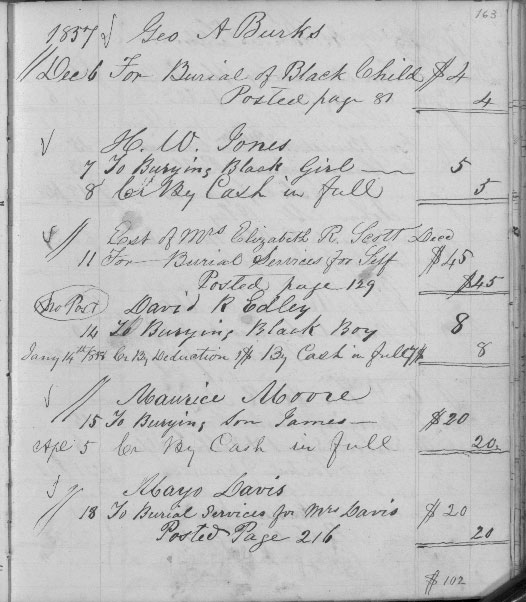 163
1857 √ Geo A Burks
// Dec 6 For Burial of Black Child $4
Posted page 81 4
√ H. W. Jones
7 To Burying Black Girl — 5
8 Cr By Cash in full 5
√ // Est of Mrs Elizabeth R. Scott Decd
11 For Burial Services for Self $45
Posted page 129 $45
No Post David R Edley
14 To Burying Black Boy 8
Jany 14th 1858 Cr By Deduction $1 By Cash in full 7$ 8
√ // Maurice Moore
15 To Burying Son James — $20
Apl 5 Cr By Cash in full 20.
√ // Mayo Davis
18 To Burial Services for Mrs Davis $20
Posted Page 216 20
$102